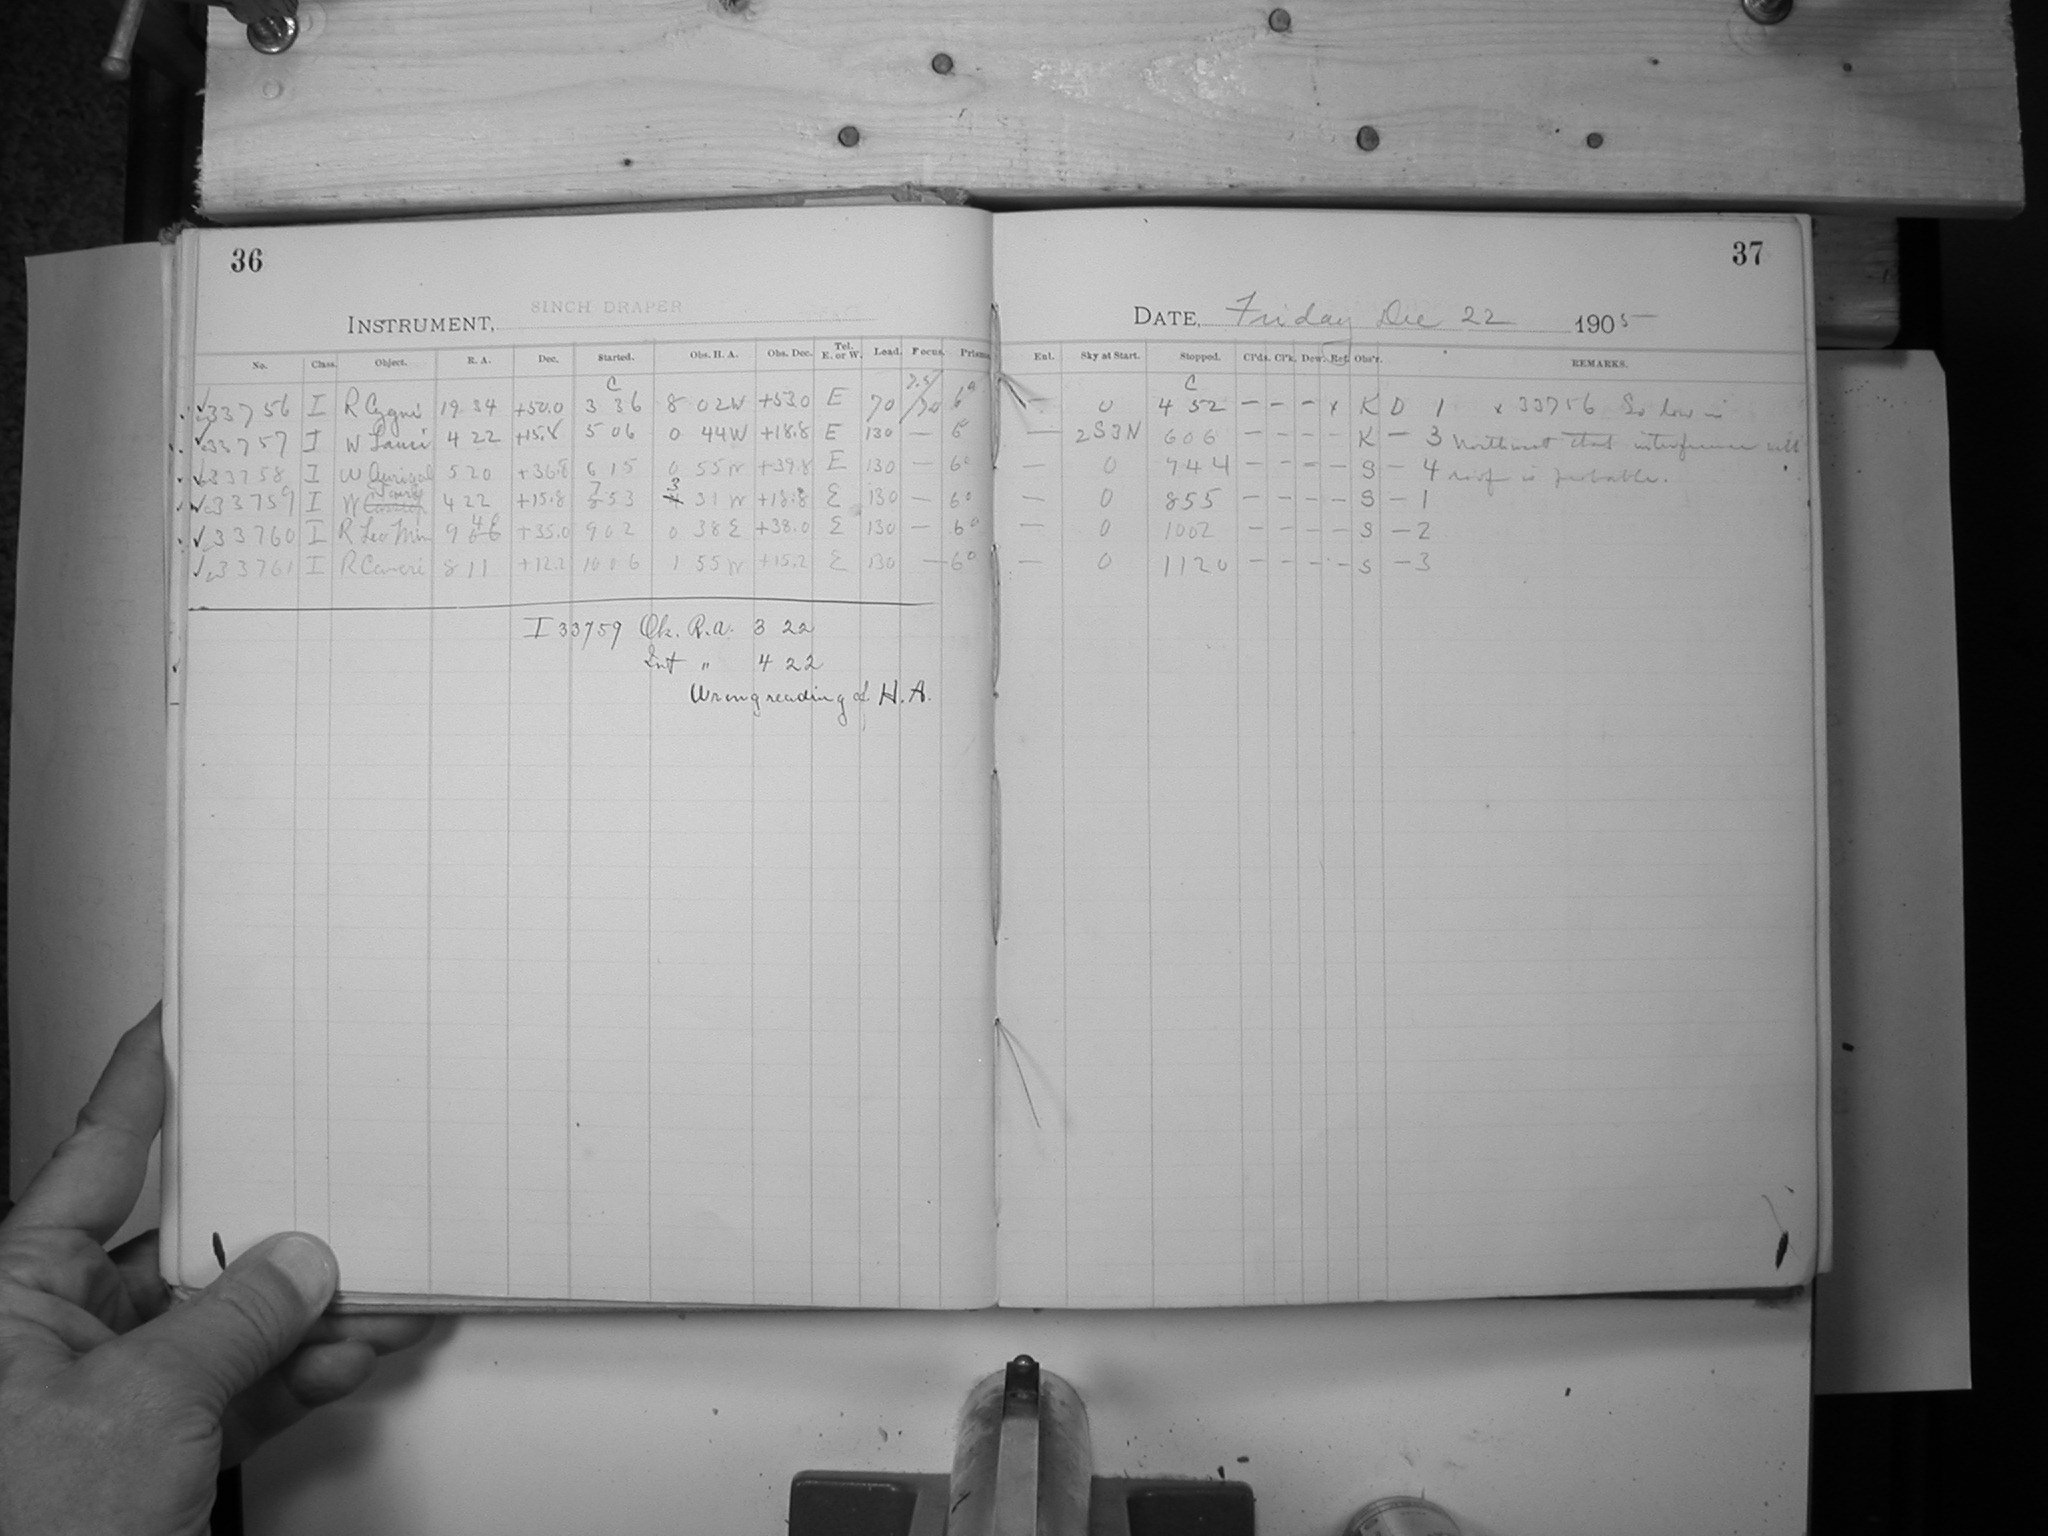 36
8INCH DRAPER
INSTRUMENT,
No. Class. Object. R. A. Dec. Started. Obs. H. A. Obs. Dec. Tel. E. or W. Load. Focus. Prisms
✓33756 I R Cygni 19 34 +50.0 C 3 36 8 02W +53.0 E 70 7.5/70 6°
✓33757 I W Tauri 4 22 +15.8 5 06 0 44W +18.8 E 130 — 6°
✓33758 I W Aurigae 5 20 +36.8 6 15 0 55W +39.8 E 130 — 6°
✓33759 I W Tauri 4 22 +15.8 7 53 3 31W +18.8 E 130 — 6°
✓33760 I R Leo Min 9 40 +35.0 9 02 0 38E +38.0 E 130 — 6°
✓33761 I R Cancri 8 11 +12.2 10 06 1 55W +15.2 E 130 — 6°
I 33759 Ch. R.A. 3 22
Int " 4 22
Wrong reading of H.A.
37
DATE, Friday Dec 22 1905
Enl. Sky at Start. Stopped. Cl'ds. Cl'k. Dew. Ref. Obs'r. REMARKS.
— 0 C 4 52 – – – x K D 1 x 33756 So low in
— 2S3N 6 06 – – – – K – 3 Northwest that interference with
— 0 7 44 – – – – S – 4 roof is probable.
— 0 8 55 – – – – S – 1
— 0 10 02 – – – – S – 2
— 0 11 20 – – – – S – 3